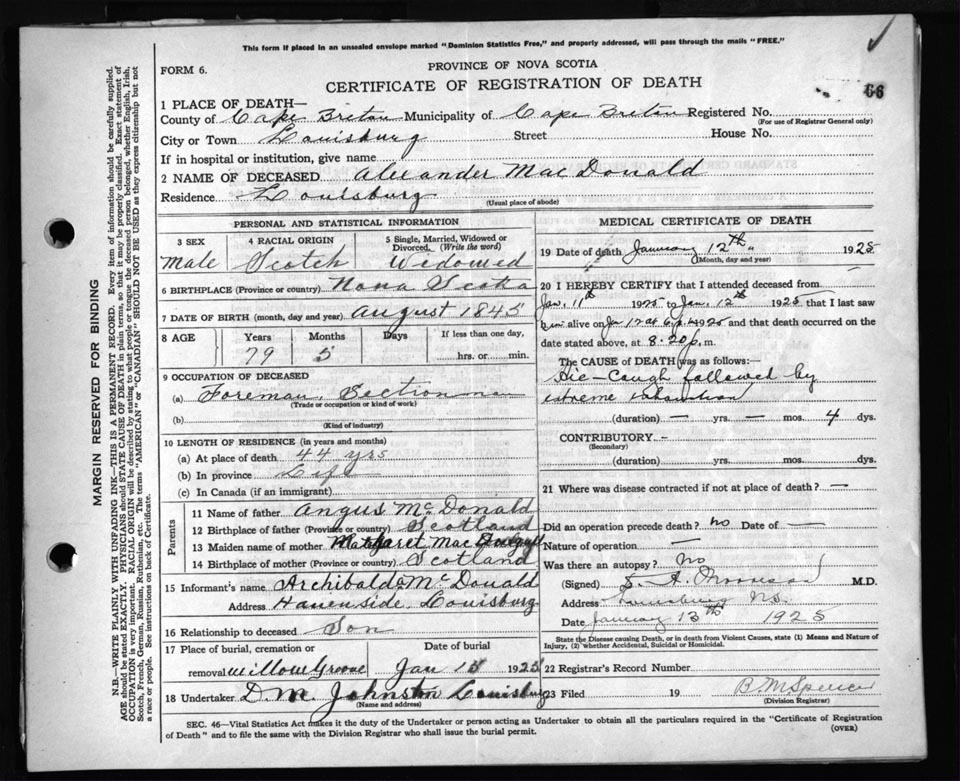 This form if placed in an unsealed envelope marked "Dominion Statistics Free," and properly addressed, will pass through the mails "FREE."
66
FORM 6.
PROVINCE OF NOVA SCOTIA
CERTIFICATE OF REGISTRATION OF DEATH
1 PLACE OF DEATH—
County of Cape Breton Municipality of Cape Breton Registered No.
(For use of Registrar General only)
City or Town Louisburg Street House No.
If in hospital or institution, give name
2 NAME OF DECEASED Alexander MacDonald
Residence Louisburg
(Usual place of abode)
PERSONAL AND STATISTICAL INFORMATION
3 SEX
Male
4 RACIAL ORIGIN
Scotch
5 Single, Married, Widowed or
Divorced. (Write the word)
Widowed
6 BIRTHPLACE (Province or country) Nova Scotia
7 DATE OF BIRTH (month, day and year) August 1845
8 AGE
Years
79
Months
5
Days
If less than one day,
hrs. or min.
9 OCCUPATION OF DECEASED
(a) Foreman, Sectionman
(Trade or occupation or kind of work)
(b)
(Kind of industry)
10 LENGTH OF RESIDENCE (in years and months)
(a) At place of death 44 yrs
(b) In province Life
(c) In Canada (if an immigrant)
Parents
11 Name of father Angus McDonald
12 Birthplace of father (Province or country) Scotland
13 Maiden name of mother Margaret Mac
14 Birthplace of mother (Province or country) Scotland
15 Informant's name Archibald McDonald
Address Havenside, Louisburg
16 Relationship to deceased Son
17 Place of burial, cremation or
removal Willow Groove
Date of burial
Jan 15 1925
18 Undertaker D. M. Johnston Louisburg
(Name and address)
MEDICAL CERTIFICATE OF DEATH
19 Date of death January 12th 1925
(Month, day and year)
20 I HEREBY CERTIFY that I attended deceased from
Jan. 11th 1925 to Jan. 12th 1925 that I last saw
him alive on Jan 12 at 6 p.m. 1925 and that death occurred on
date stated above, at 8.20 p. m.
The CAUSE OF DEATH was as follows:—
Hic-Cough followed by
extreme exhaustion
(duration) — yrs. — mos. 4 dys.
CONTRIBUTORY —
(Secondary)
(duration) yrs. mos. dys.
21 Where was disease contracted if not at place of death? —
Did an operation precede death? no Date of —
Nature of operation —
Was there an autopsy? no
(Signed) M.D.
Address Louisburg N.S.
Date January 13th 1925
State the Disease causing Death, or in death from Violent Causes, state (1) Means and Nature of
Injury, (2) whether Accidental, Suicidal or Homicidal.
22 Registrar's Record Number
23 Filed 19 B M Spencer
(Division Registrar)
SEC. 46—Vital Statistics Act makes it the duty of the Undertaker or person acting as Undertaker to obtain all the particulars required in the "Certificate of Registration
of Death" and to file the same with the Division Registrar who shall issue the burial permit.
(OVER)
MARGIN RESERVED FOR BINDING
N.B.—WRITE PLAINLY WITH UNFADING INK—THIS IS A PERMANENT RECORD. Every item of information should be carefully supplied.
AGE should be stated EXACTLY. PHYSICIANS should STATE CAUSE OF DEATH in plain terms, so that it may be properly classified. Exact statement of
OCCUPATION is very important. RACIAL ORIGIN will be described by stating to what people or tongue the deceased person belonged, whether English, Irish,
Scotch, French, German, Russian, Ruthenian, etc. The terms "AMERICAN" or "CANADIAN" SHOULD NOT BE USED as they express citizenship but not
a race or people. See instructions on back of Certificate.